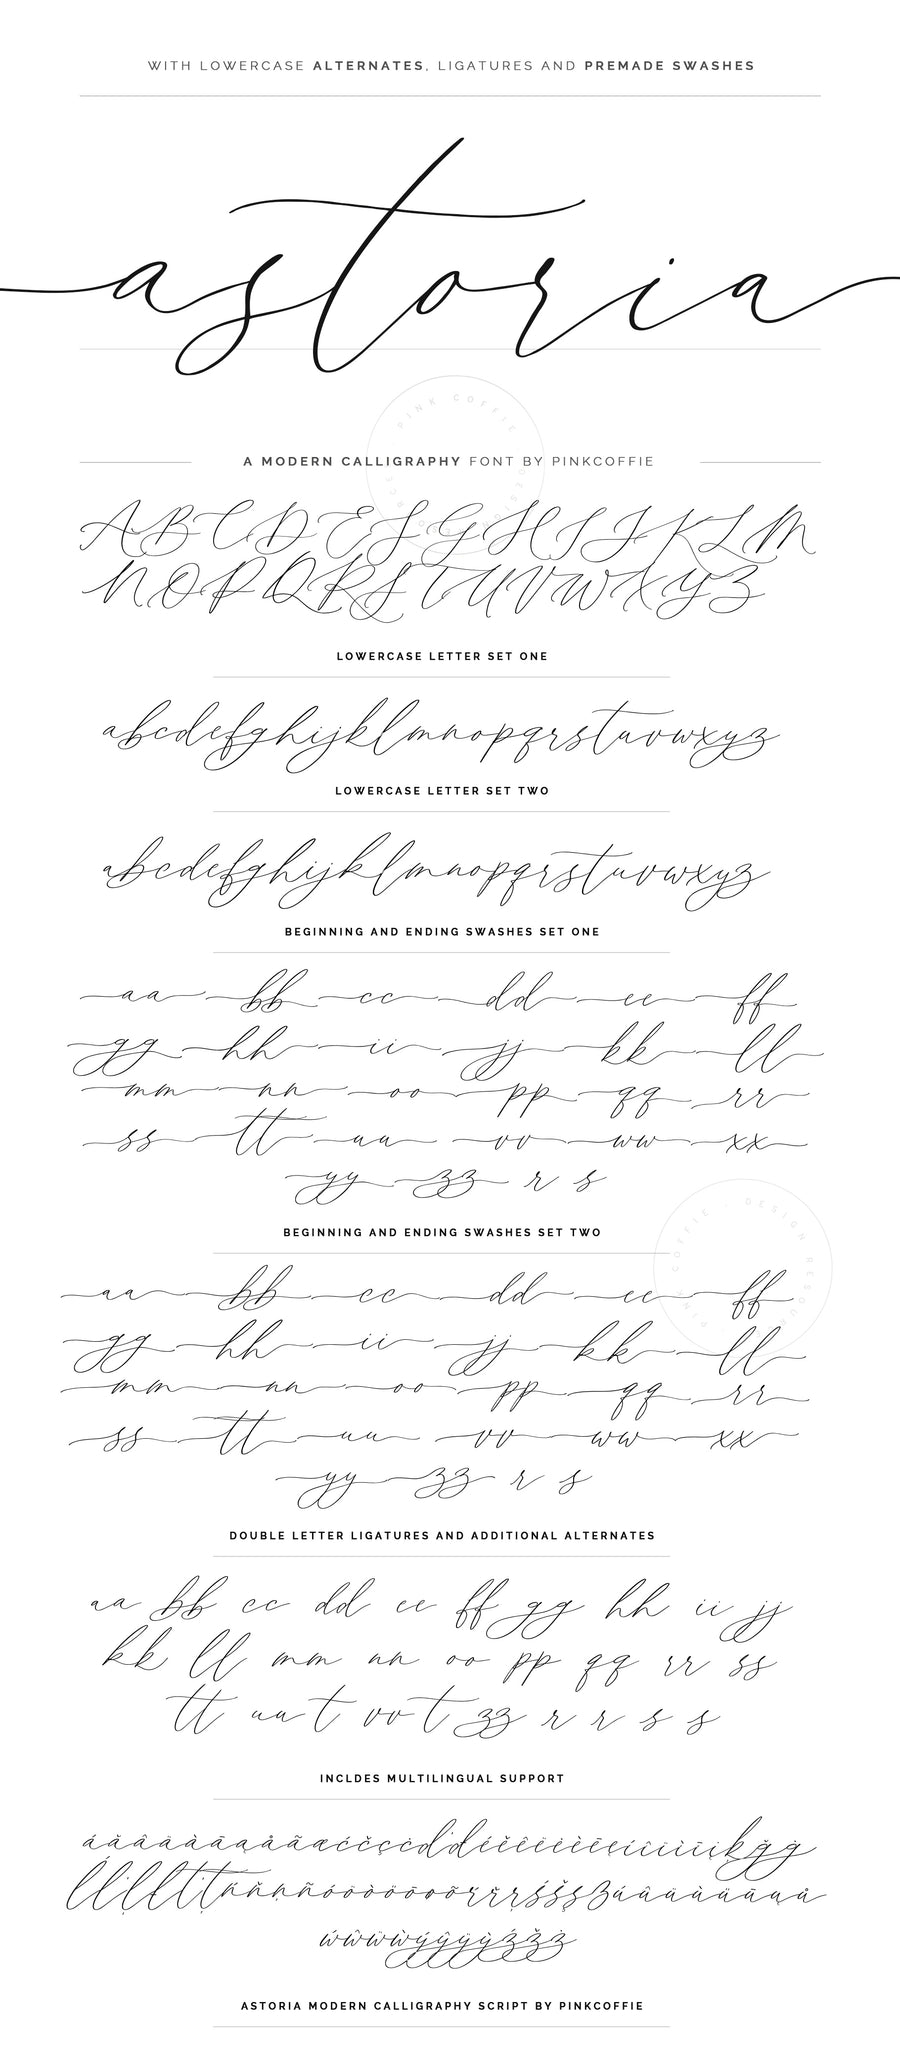 WITH LOWERCASE ALTERNATES, LIGATURES AND PREMADE SWASHES
astoria
PINK COFFIE
A MODERN CALLIGRAPHY FONT BY PINKCOFFIE
A B C D E F G H I J K L M
N O P Q R S T U V W X Y Z
LOWERCASE LETTER SET ONE
abcdefghijklmnopqrstuvwxyz
LOWERCASE LETTER SET TWO
abcdefghijklmnopqrstuvwxyz
BEGINNING AND ENDING SWASHES SET ONE
aa bb cc dd ee ff
gg hh ii jj kk ll
mm nn oo pp qq rr
ss tt uu vv ww xx
yy zz r s
BEGINNING AND ENDING SWASHES SET TWO
aa bb cc dd ee ff
gg hh ii jj kk ll
mm nn oo pp qq rr
ss tt uu vv ww xx
yy zz r s
DOUBLE LETTER LIGATURES AND ADDITIONAL ALTERNATES
aa bb cc dd ee ff gg hh ii jj
kk ll mm nn oo pp qq rr ss
tt uu t vv t zz r r s s
INCLDES MULTILINGUAL SUPPORT
ASTORIA MODERN CALLIGRAPHY SCRIPT BY PINKCOFFIE